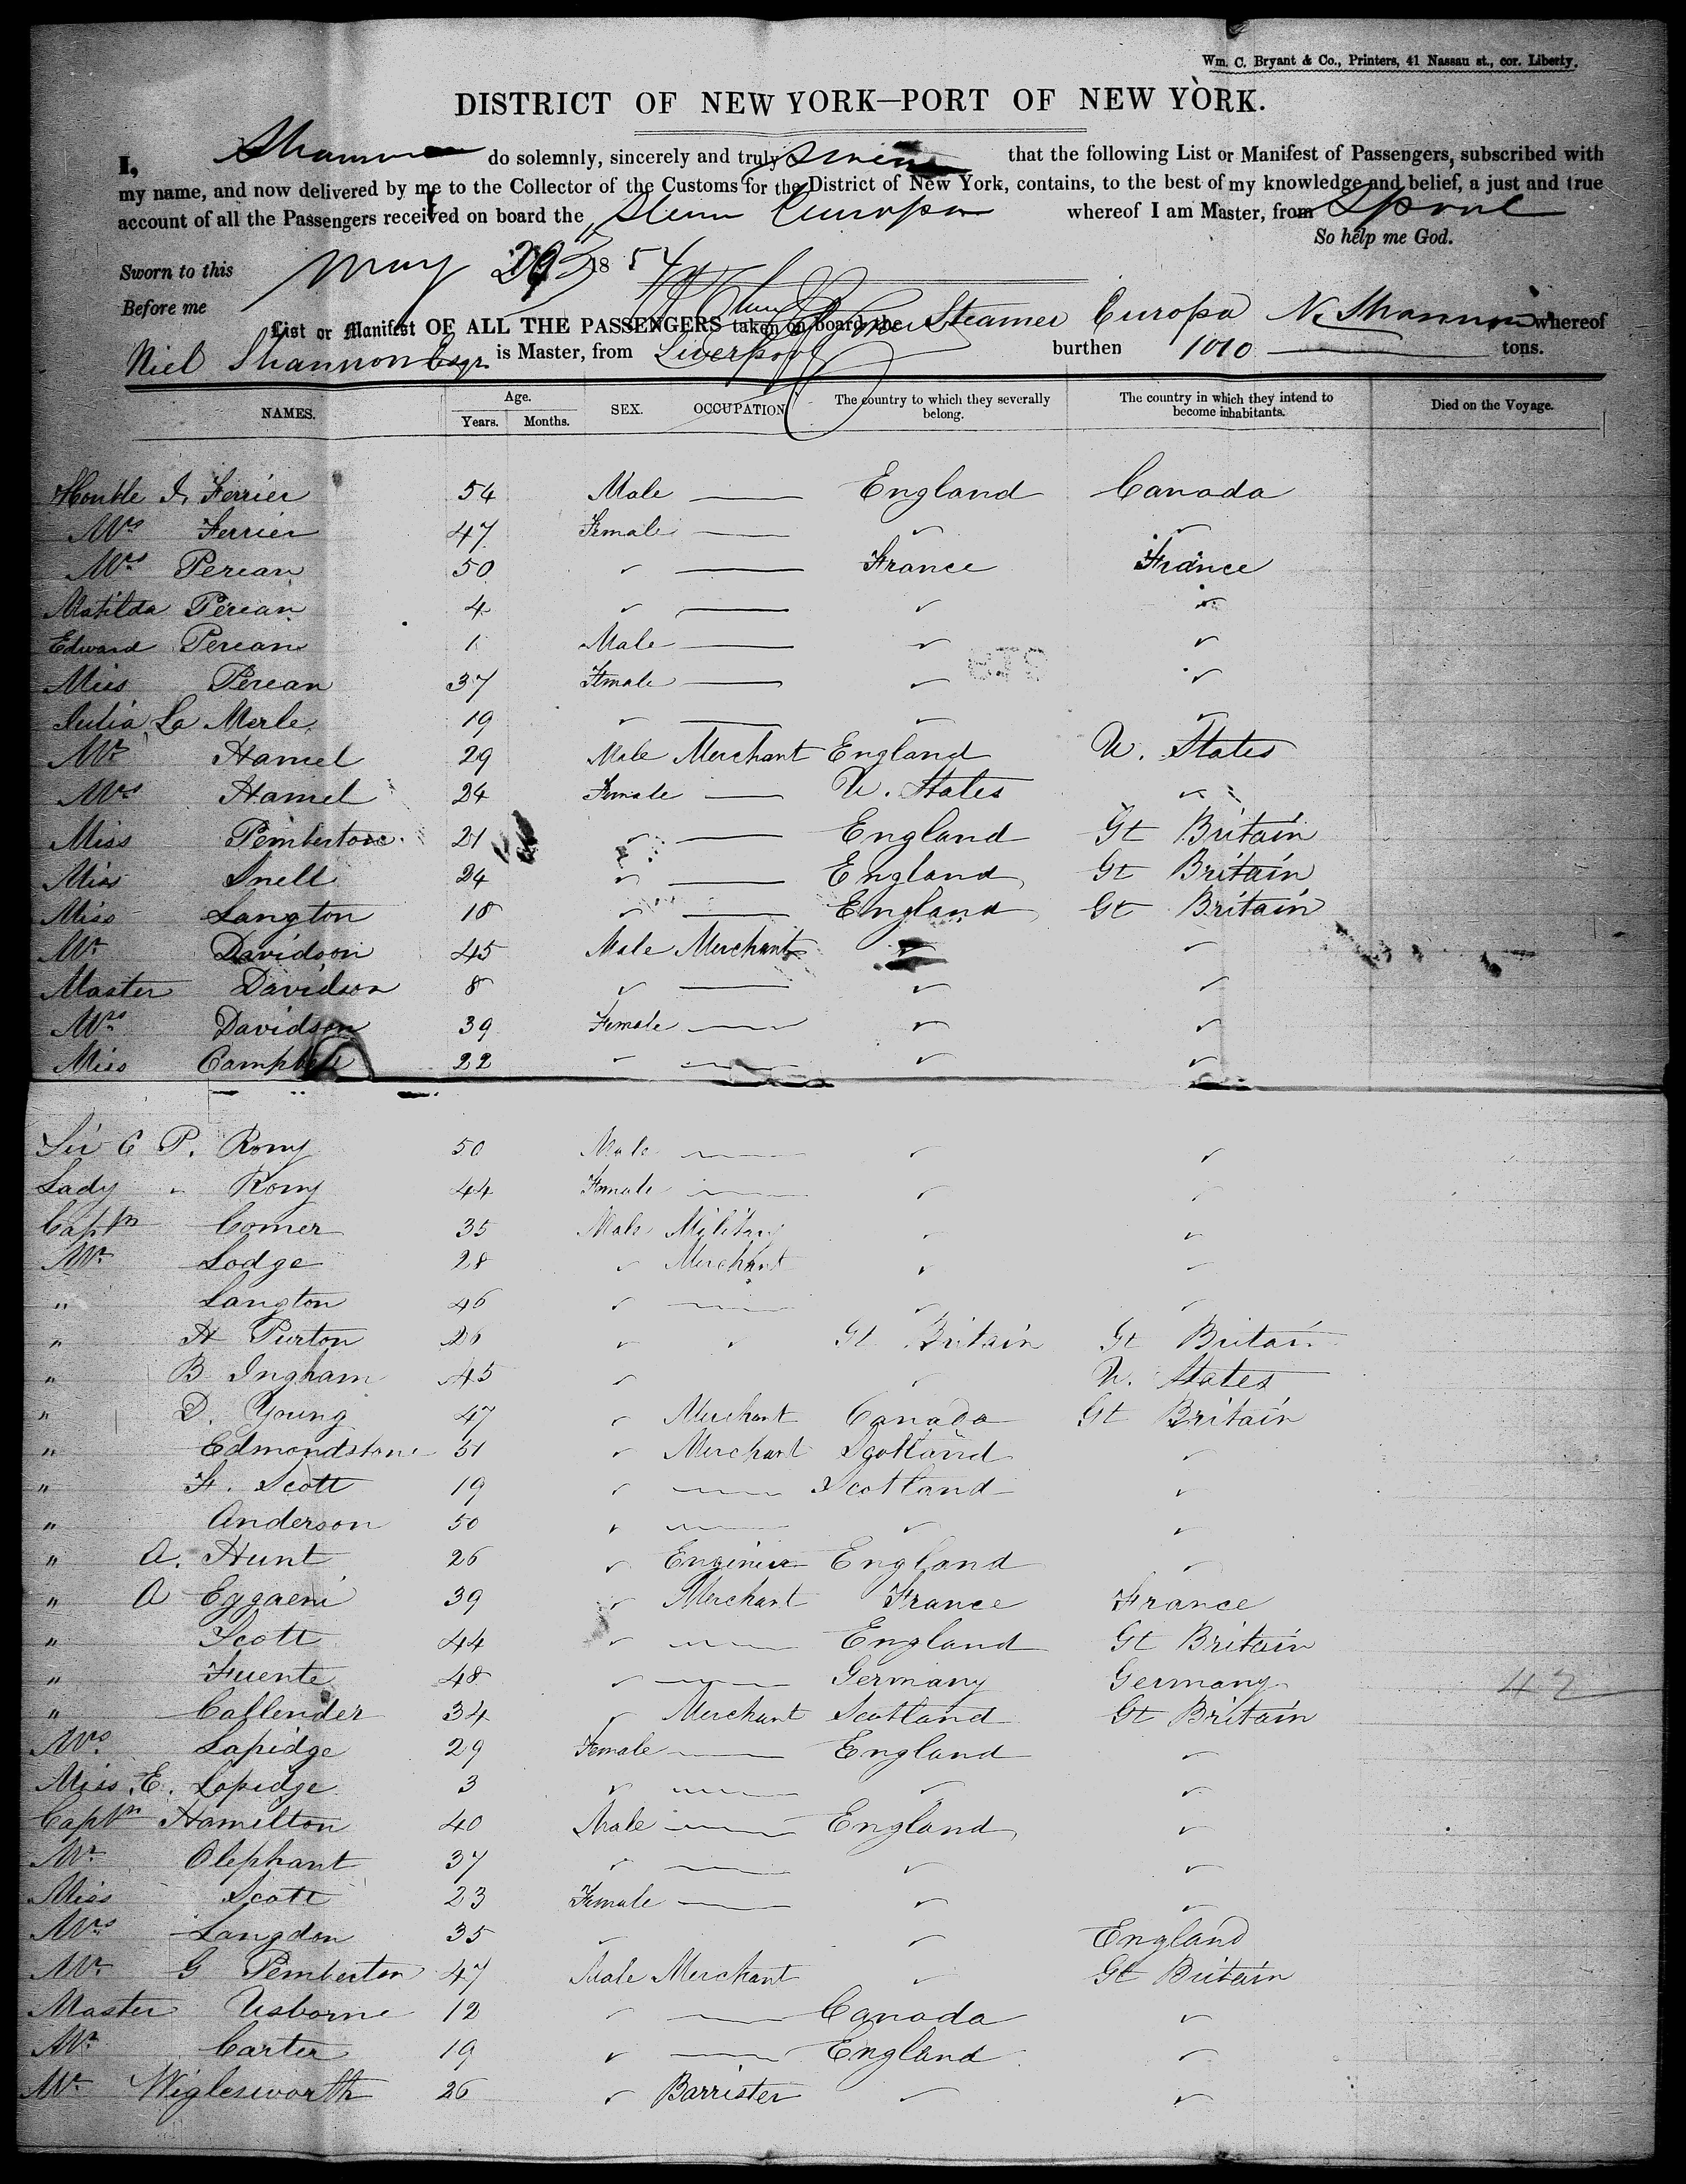 Wm. C. Bryant & Co., Printers, 41 Nassau st., cor. Liberty.
DISTRICT OF NEW YORK—PORT OF NEW YORK.
I, Shannon do solemnly, sincerely and truly swear that the following List or Manifest of Passengers, subscribed with
my name, and now delivered by me to the Collector of the Customs for the District of New York, contains, to the best of my knowledge and belief, a just and true
account of all the Passengers received on board the Steam Europa whereof I am Master, from Lpool
So help me God.
Sworn to this May 1854
Before me
List or Manifest OF ALL THE PASSENGERS taken on board the Steamer Europa N. Shannon whereof
Niel Shannon Esqr. is Master, from Liverpool burthen 1010 tons.
NAMES. Age. Years. Months. SEX. OCCUPATION The country to which they severally belong. The country in which they intend to become inhabitants. Died on the Voyage.
Honble J. Ferrier 54 Male — England Canada
Mrs Ferrier 47 Female — ✓ ✓
Mrs Perean 50 ✓ — France France
Matilda Perean 4 ✓ — ✓ ✓
Edward Perean 1 Male — ✓ ✓
Miss Perean 37 Female — ✓ ✓
Julia La Merle 19 ✓ — ✓ ✓
Mr Hamel 29 Male Merchant England U. States
Mrs Hamel 24 Female — U. States ✓ ✓
Miss Pemberton 21 ✓ — England Gt Britain
Miss Snell 24 ✓ — England Gt Britain
Miss Langton 18 ✓ — England Gt Britain
Mr Davidson 45 Male Merchant ✓ ✓
Master Davidson 8 ✓ — ✓ ✓
Mrs Davidson 39 Female — ✓ ✓
Miss Campbell 22 ✓ — ✓ ✓
Sir C P. Rony 50 Male — ✓ ✓
Lady " Rony 44 Female — ✓ ✓
Captn Comer 35 Male Military ✓ ✓
Mr Lodge 28 ✓ Merchant ✓ ✓
" Langton 46 ✓ — ✓ ✓
" H Purton 26 ✓ ✓ Gt Britain Gt Britain
" B Ingham 45 ✓ ✓ U. States
" D. Young 47 ✓ Merchant Canada Gt Britain
" Edmondstone 51 ✓ Merchant Scotland ✓
" F. Scott 19 ✓ — Scotland ✓
" Anderson 50 ✓ — ✓ ✓
" A. Hunt 26 ✓ Engineer England ✓
" A Eggaeni 39 ✓ Merchant France France
" Scott 44 ✓ — England Gt Britain
" Fuente 48 ✓ — Germany Germany 42
" Callender 34 ✓ Merchant Scotland Gt Britain
Mrs Lapidge 29 Female — England ✓
Miss E. Lapidge 3 ✓ — ✓ ✓
Captn Hamilton 40 Male — England ✓
Mr Olephant 37 ✓ — ✓ ✓
Miss Scott 23 Female — ✓ ✓
Mrs Langdon 35 ✓ ✓ England
Mr G Pemberton 47 Male Merchant ✓ Gt Britain
Master Usborne 12 ✓ — Canada ✓
Mr Carter 19 ✓ — England ✓
Mr Wiglesworth 26 ✓ Barrister ✓ ✓